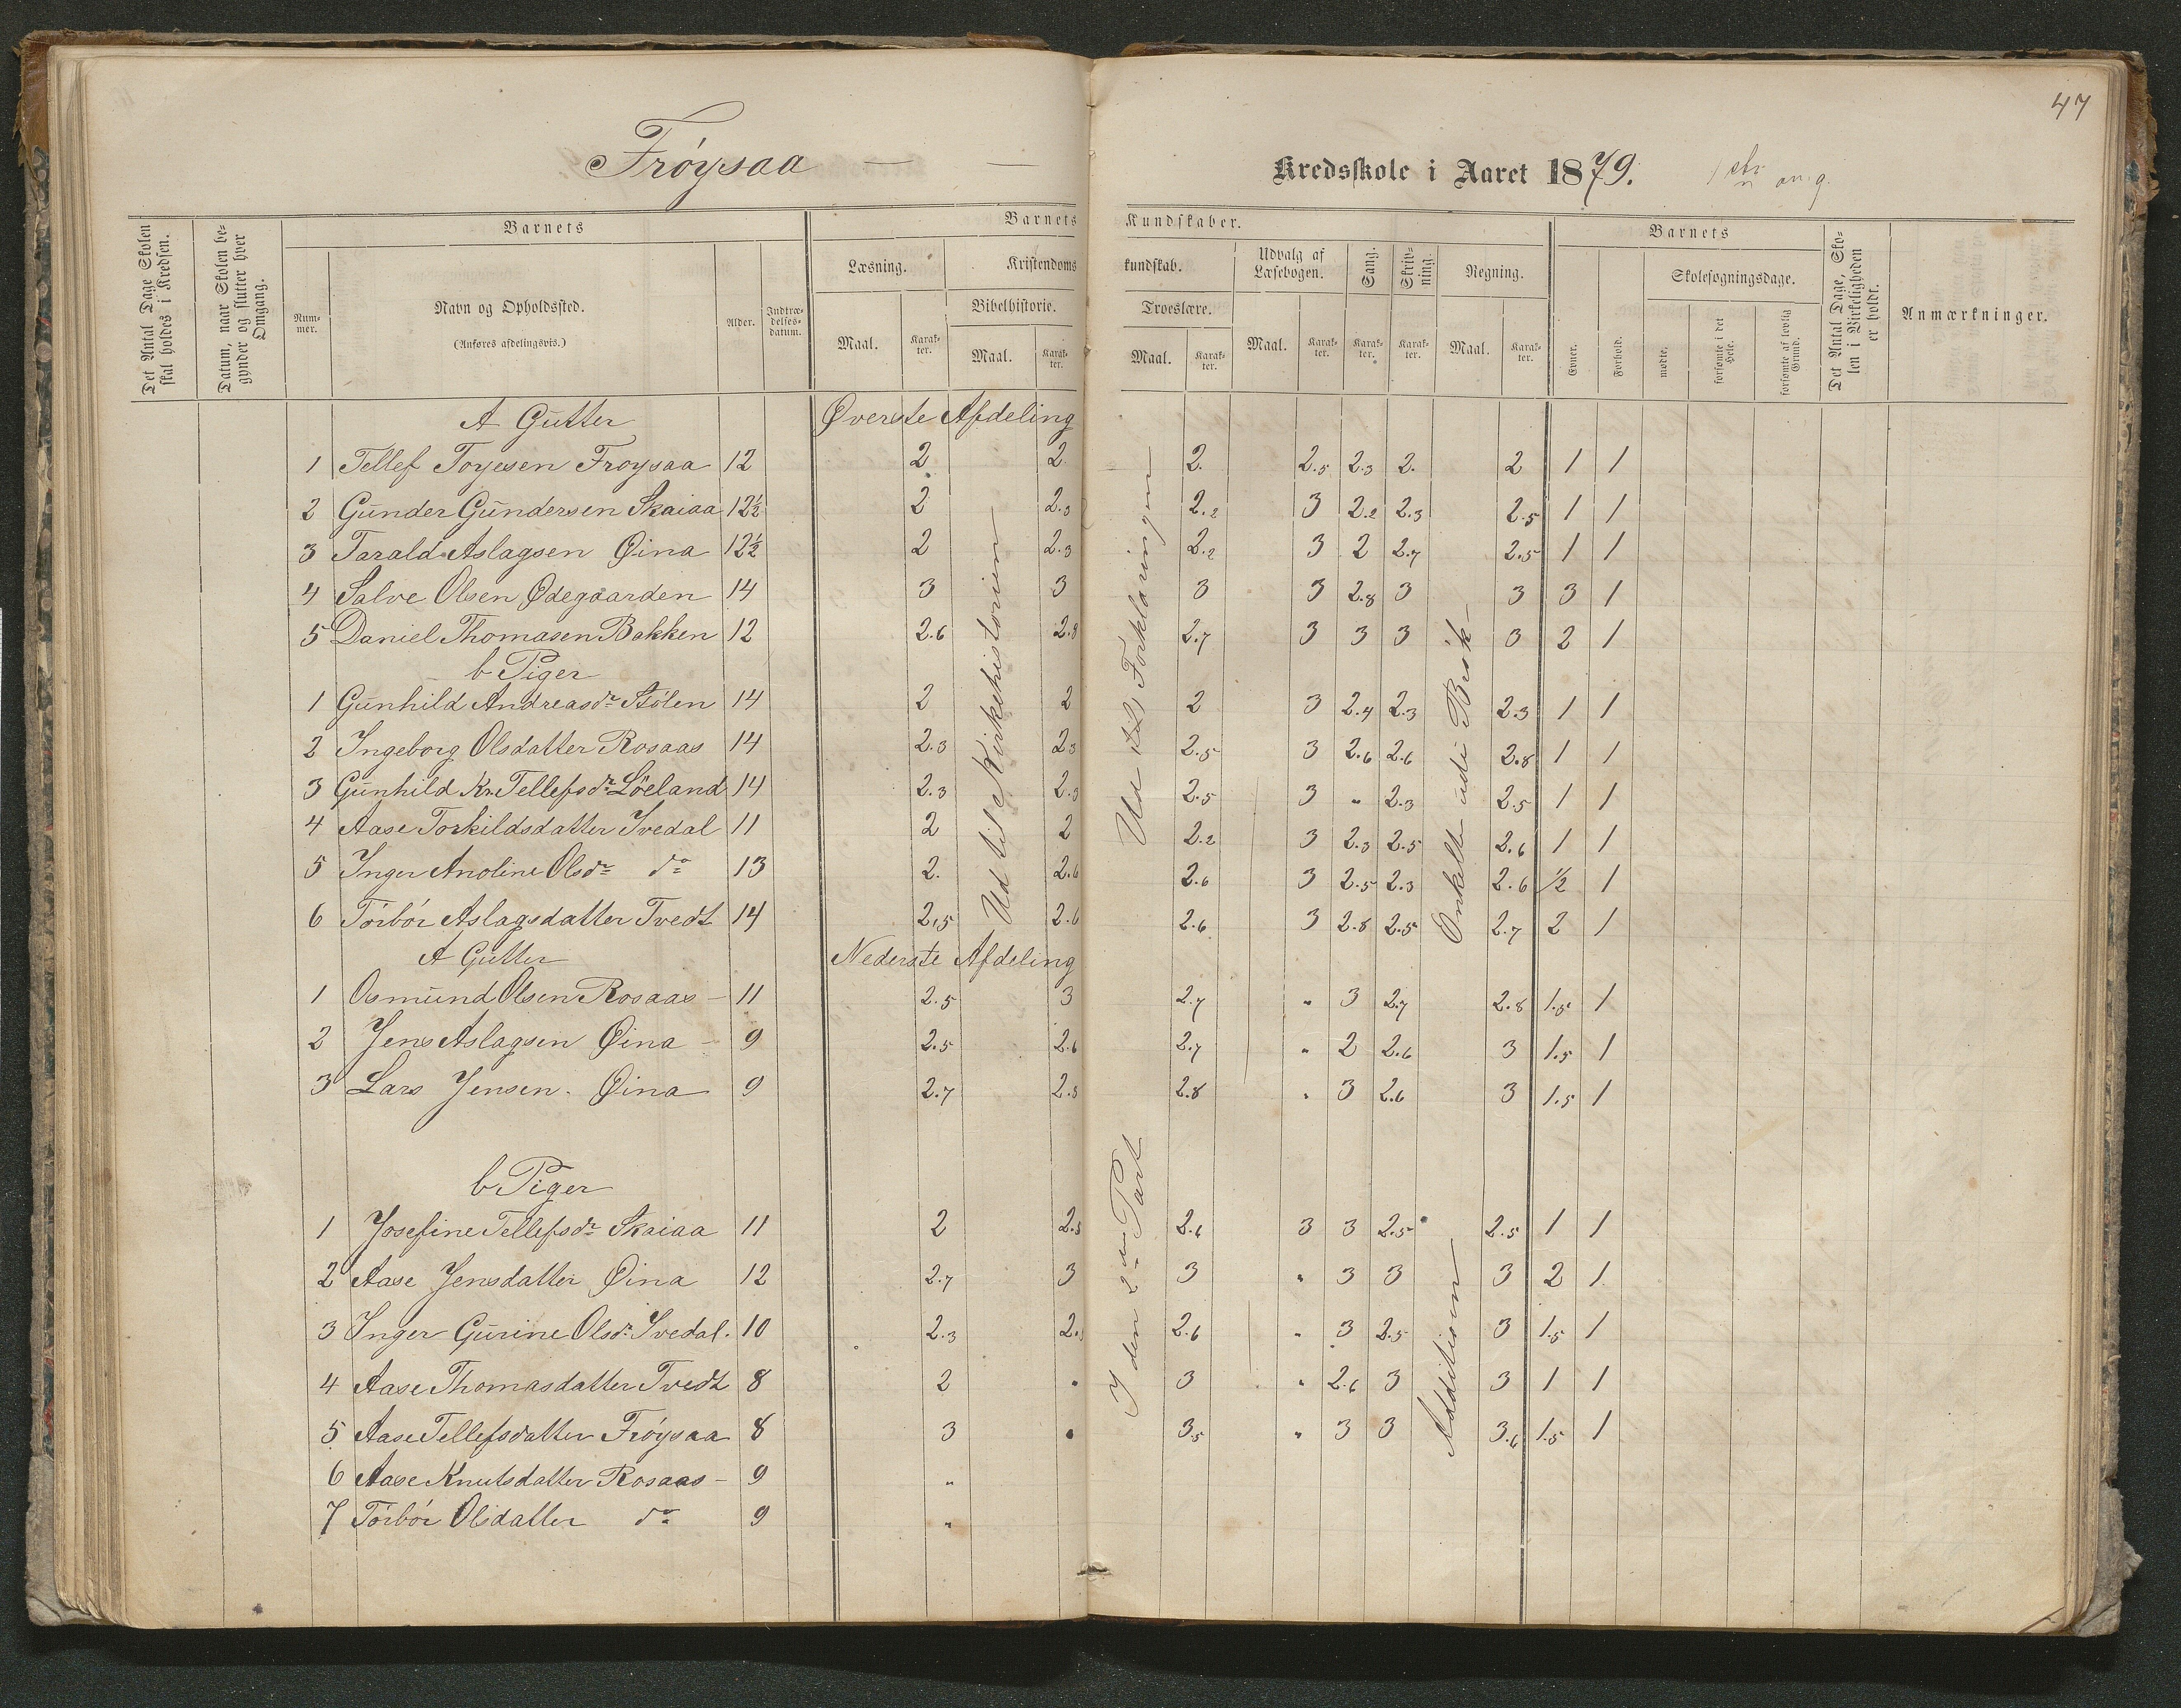 47
Frøysaa — — Kredsskole i Aaret 1879.
Det Antal Dage Skolen skal holdes i Kredsen.
Datum, naar Skolen begynder og slutter hver Omgang.
Barnets
Nummer.
Navn og Opholdssted.
(Anføres afdelingsvis.)
Alder.
Indtrædelsesdatum.
Barnets Kundskaber.
Læsning.
Maal. Karakter.
Kristendomskundskab.
Bibelhistorie.
Maal. Karakter.
Troeslære.
Maal. Karakter.
Udvalg af Læsebogen.
Maal. Karakter.
Sang.
Karakter.
Skrivning.
Karakter.
Regning.
Maal. Karakter.
Barnets
Evner.
Forhold.
Skolesøgningsdage.
mødte.
forsømte i det Hele.
forsømte af lovlig Grund.
Det Antal Dage, Skolen i Virkeligheden er holdt.
Anmærkninger.
A Gutter Øverste Afdeling
1 Tellef Toyesen Froysaa 12 2 2 2. 2.5 2.3 2. 2 1 1
2 Gunder Gundersen Skaiaa 12½ 2 2.3 2.2 3 2.2 2.3 2.5 1 1
3 Tarald Aslagsen Øina 12½ 2 2.3 2.2 3 2 2.7 2.5 1 1
4 Salve Olsen Ødegaarden 14 3 3 3 3 2.8 3 3 3 1
5 Daniel Thomasen Bakken 12 2.6 2.8 2.7 3 3 3 3 2 1
b Piger
1 Gunhild Andreasdr Stölen 14 2 2 2 3 2.4 2.3 2.3 1 1
2 Ingeborg Olsdatter Rosaas 14 2.3 2.3 2.5 3 2.6 2.6 2.8 1 1
3 Gunhild Kr. Tellefsdr Löeland 14 2.3 2.3 2.5 3 " 2.3 2.5 1 1
4 Aase Torkildsdatter Ivedal 11 2 2 2.2 3 2.3 2.5 2.6 1 1
5 Inger Anoline Olsdr do 13 2. 2.6 2.6 3 2.5 2.3 2.6 ½ 1
6 Tórbór Aslagsdatter Tvedt 14 2,5 2.6 2.6 3 2.8 2.5 2.7 2 1
Ud til Kirkehistorien
Ud Forklaringen
Enkelt udi Brök
A Gutter Nederste Afdeling
1 Osmund Olsen Rosaas – 11 2.5 3 2.7 " 3 2.7 2.8 1.5 1
2 Jens Aslagsen Øina – 9 2.5 2.6 2.7 " 2 2.6 3 1.5 1
3 Lars Jensen. Øina 9 2.7 2.8 2.8 " 3 2.6 3 1.5 1
b Piger
1 Josefine Tellefsdr Skaiaa 11 2 2.5 2.6 3 3 2.5 2.5 1 1
2 Aase Jensdatter Øina 12 2.7 3 3 " 3 3 3 2 1
3 Inger Gurine Olsdr Ivedal. 10 2.3 2. 2.6 " 3 2.5 3 1.5 1
4 Aase Thomasdatter Tvedt 8 2 " 3 " 2.6 3 3 1 1
5 Aase Tellefsdatter Fróysaa 8 3 " 3.5 " 3 3 3.6 1.5 1
6 Aase Knutsdatter Rosaas – 9 "
7 Tórbór Olsdatter do 9 "
I den 2den Part
Additionen